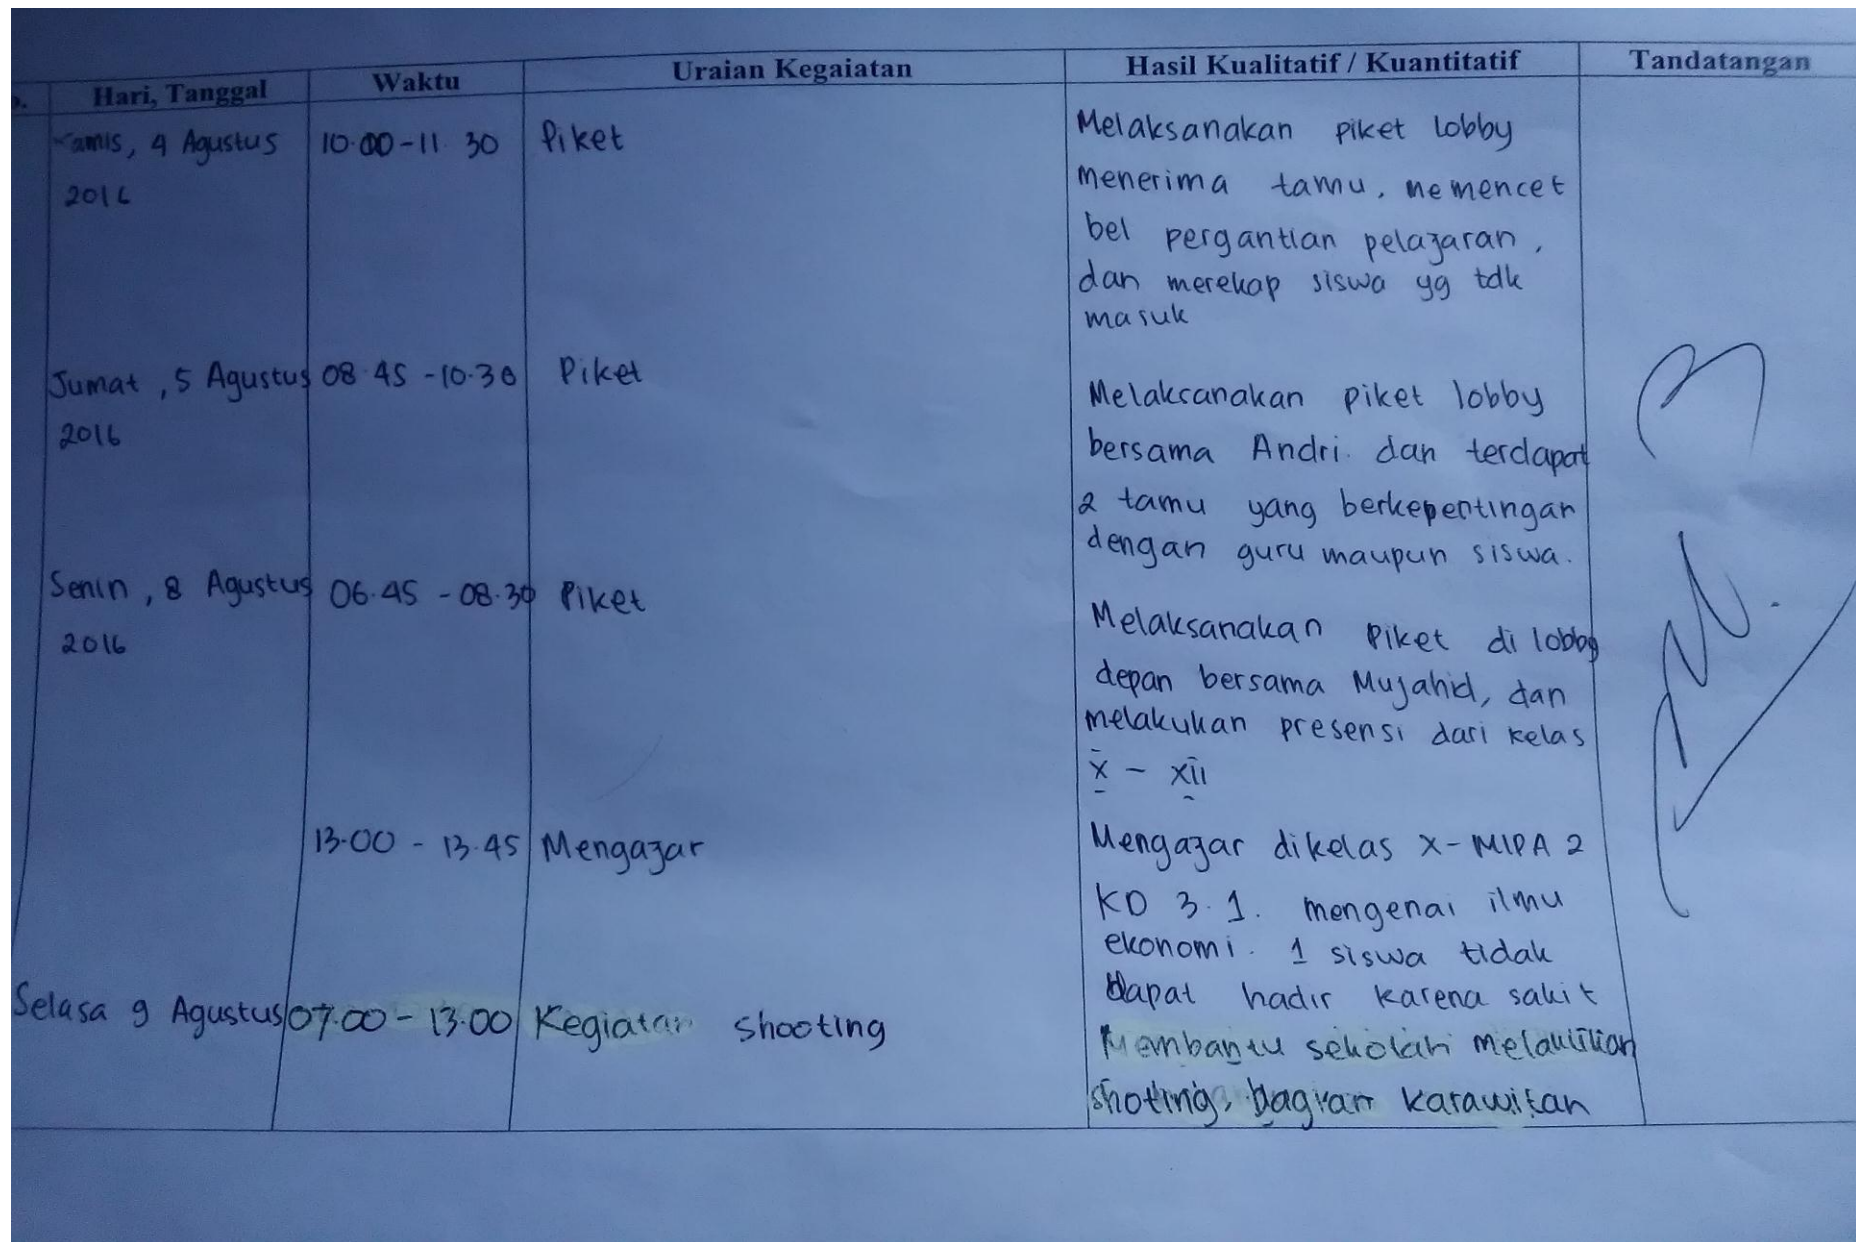 Hari, Tanggal Waktu Uraian Kegaiatan Hasil Kualitatif / Kuantitatif Tandatangan
Kamis, 4 Agustus 10.00-11.30 Piket Melaksanakan piket lobby
2016 menerima tamu, memencet
bel pergantian pelajaran,
dan merekap siswa yg tdk
masuk
Jumat, 5 Agustus 08.45-10.30 Piket Melaksanakan piket lobby
2016 bersama Andri. dan terdapat
2 tamu yang berkepentingan
dengan guru maupun siswa.
Senin, 8 Agustus 06.45 - 08.30 Piket Melaksanakan Piket di lobby
2016 depan bersama Mujahid, dan
melakukan presensi dari kelas
X - XII
13.00 - 13.45 Mengajar Mengajar dikelas X-MIPA 2
KD 3.1. mengenai ilmu
ekonomi. 1 siswa tidak
dapat hadir karena sakit
Selasa 9 Agustus 07.00 - 13.00 Kegiatan shooting Membantu sekolah melakukan
shoting, bagian karawitan